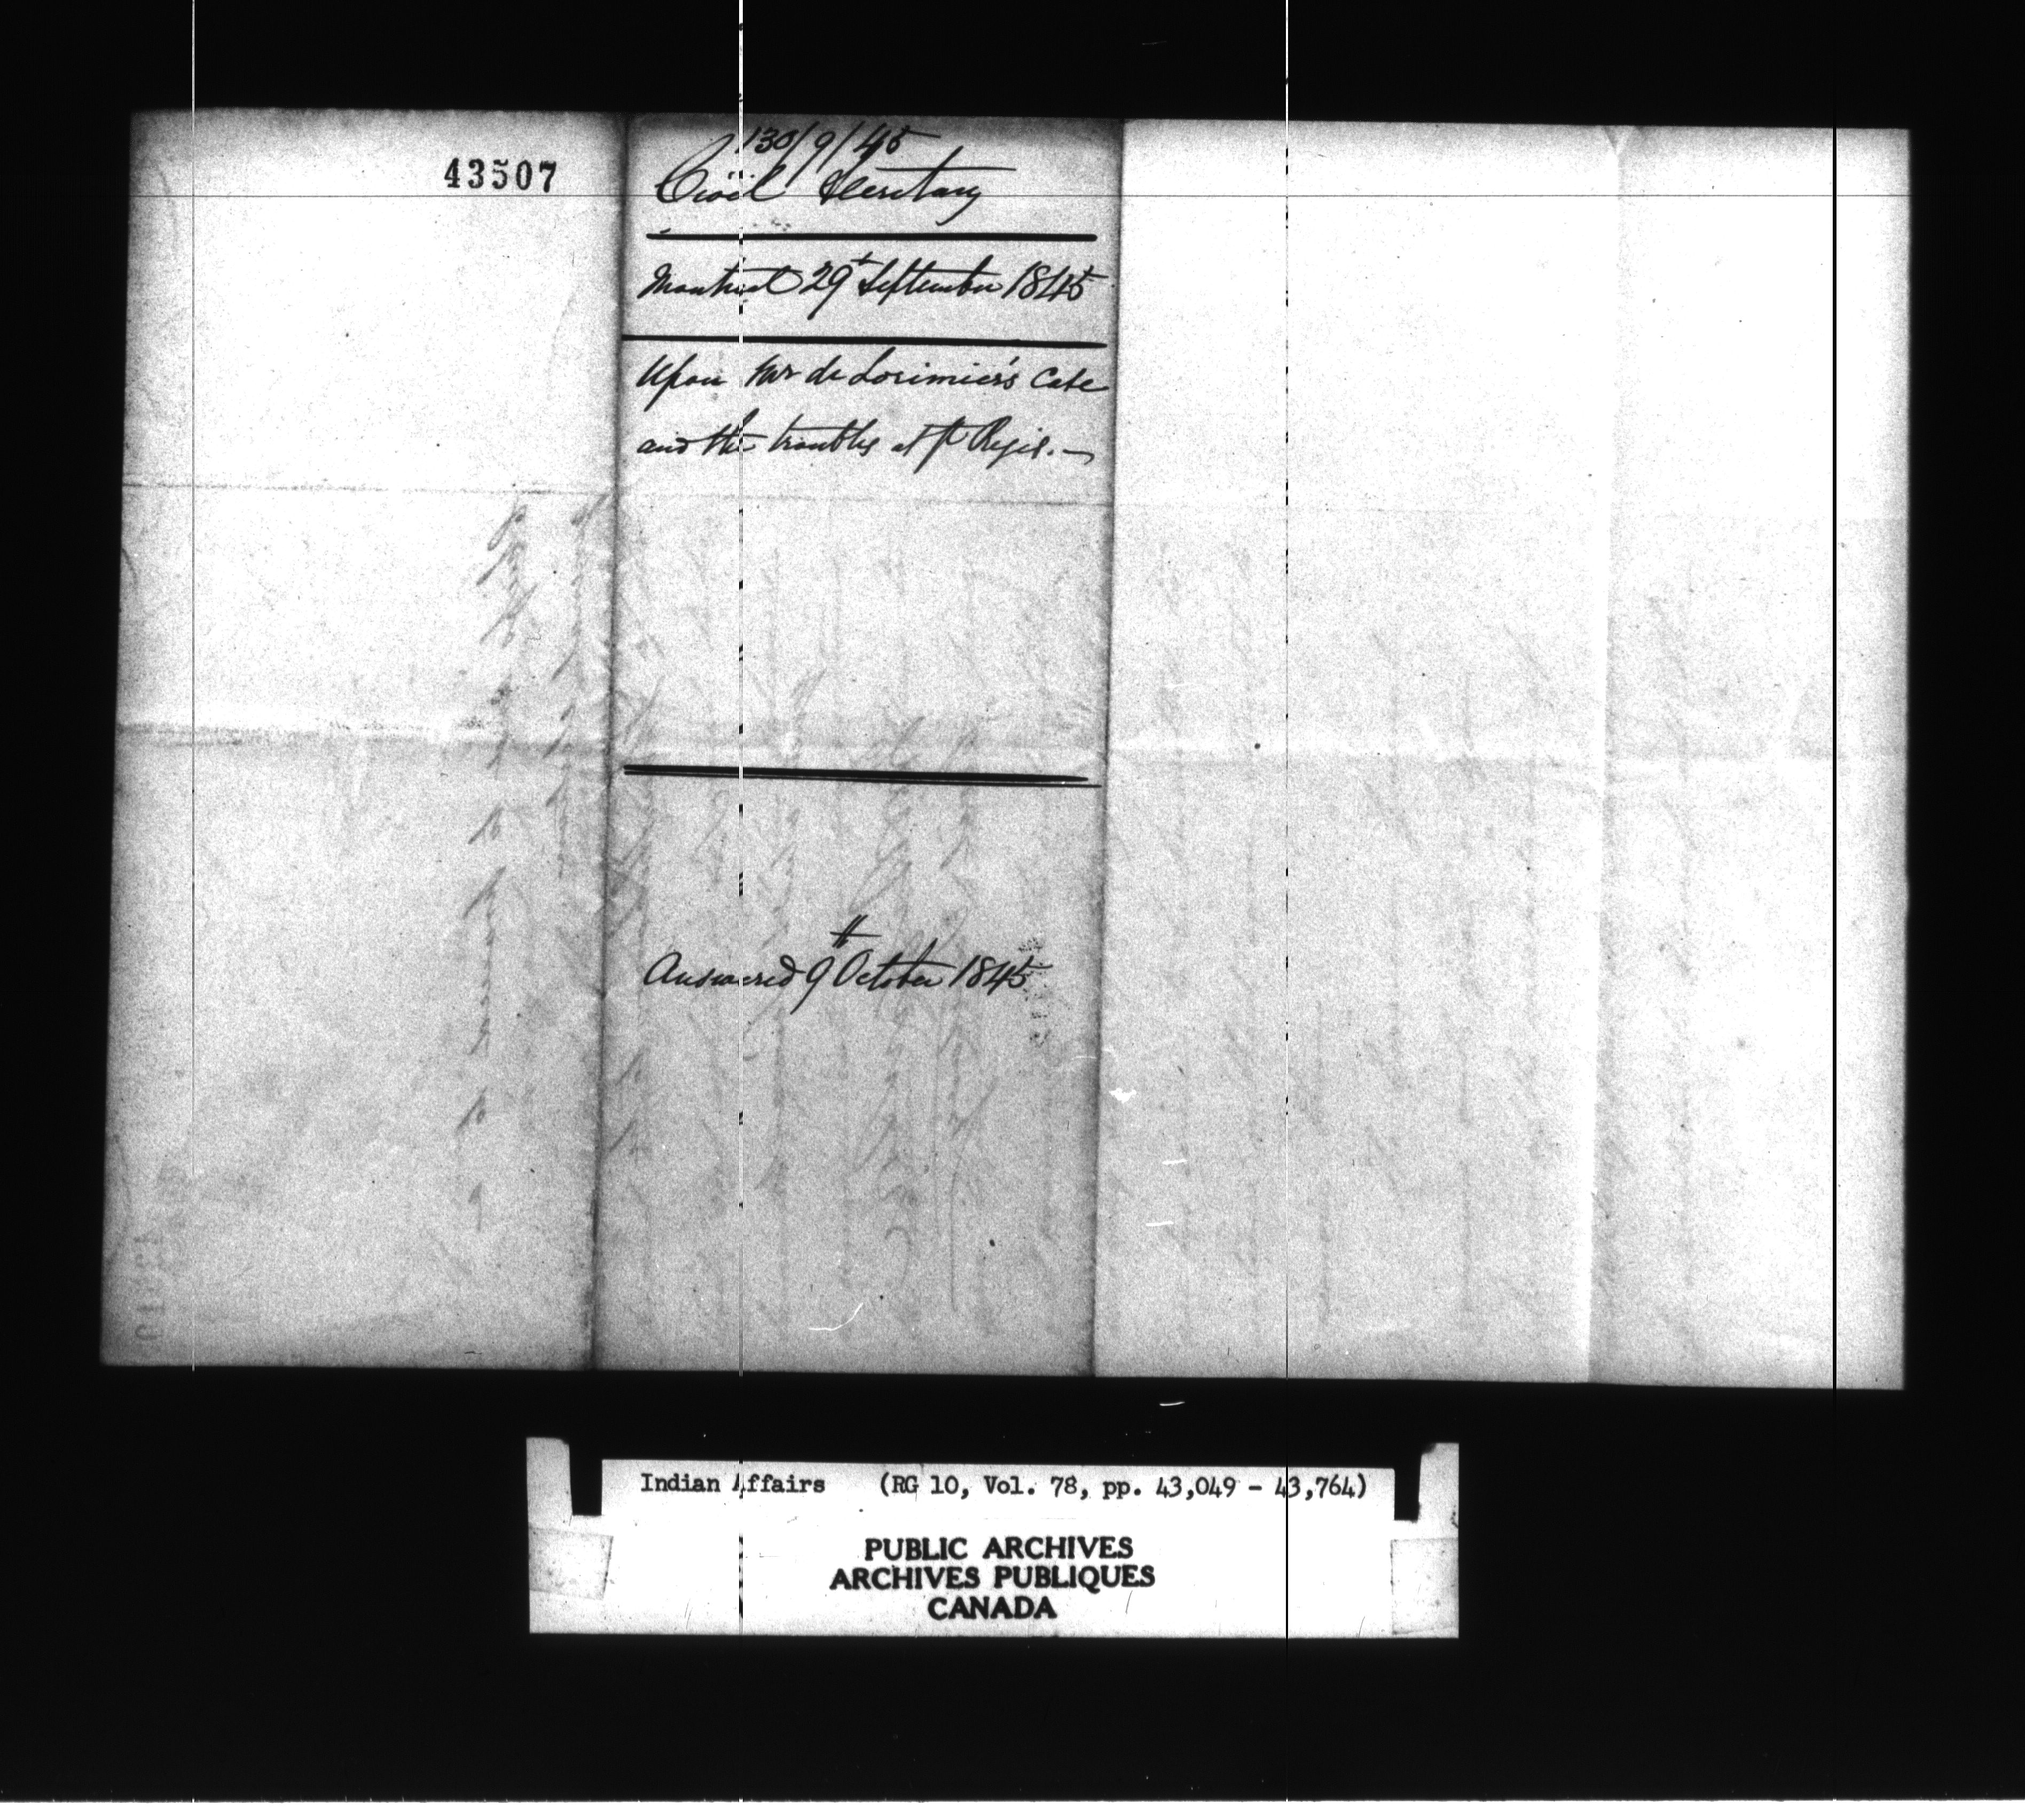 43507
130/9/45
Civil Secretary
Montreal 29t September 1845
Upon Mr de Lorimier's Case
and the troubles at St Regis.—
Answered 9th October 1845
Indian Affairs (RG 10, Vol. 78, pp. 43,049 - 43,764)
PUBLIC ARCHIVES
ARCHIVES PUBLIQUES
CANADA